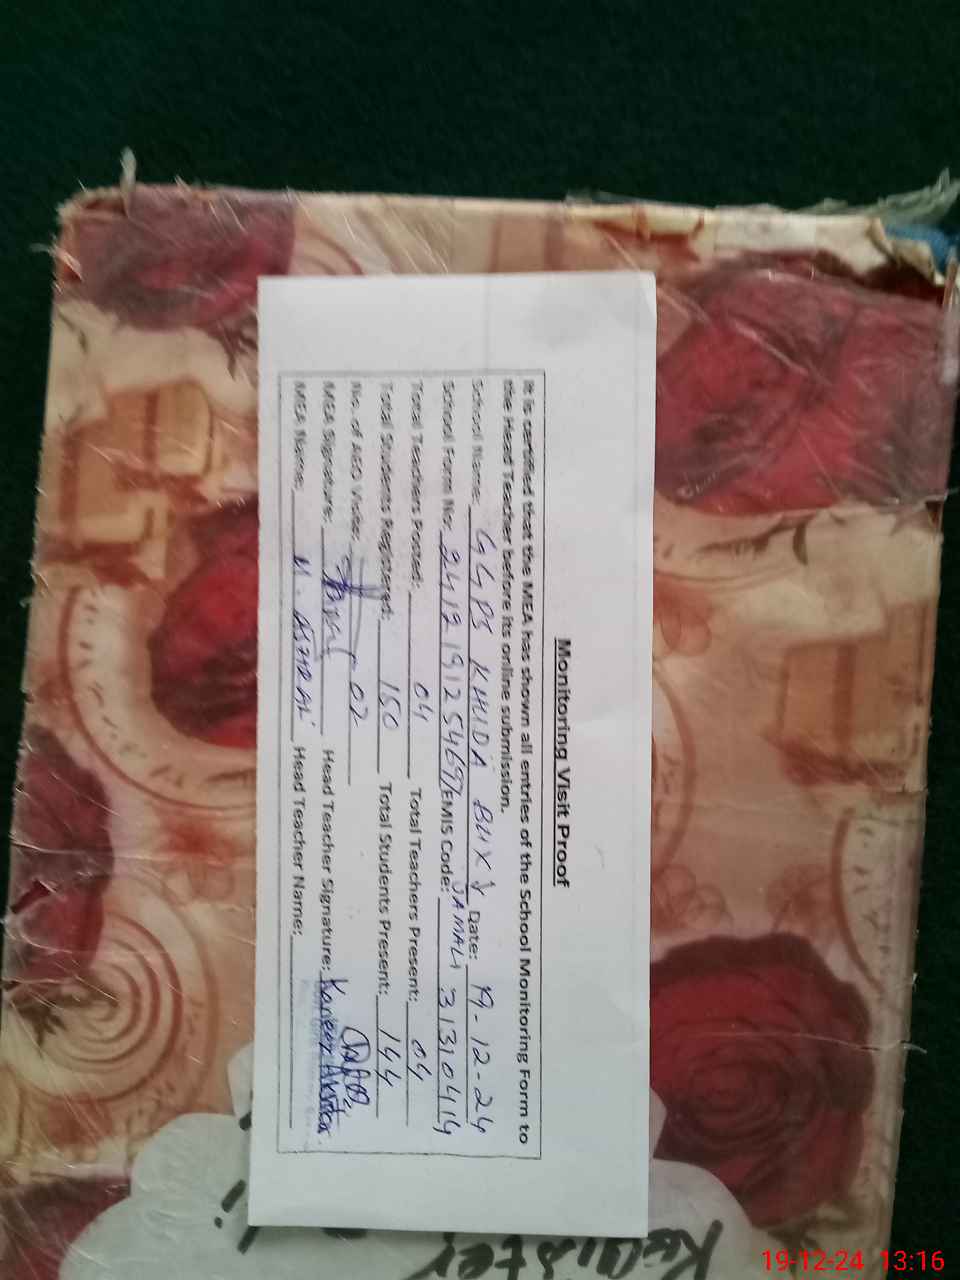 Monitoring Visit Proof
It is certified that the MEA has shown all entries of the School Monitoring Form to
the Head Teacher before its online submission.
School Name: GGPS KHUDA BUX JAMALI Date: 19-12-24
School Form No: 2412191254697 EMIS Code: 31310414
Total Teachers Posted: 04 Total Teachers Present: 04
Total Students Registered: 150 Total Students Present: 144
No. of AEO Visits: 02
MEA Signature: Head Teacher Signature: Kaneez Akhtar
MEA Name: M. Head Teacher Name:
Register
19-12-24 13:16